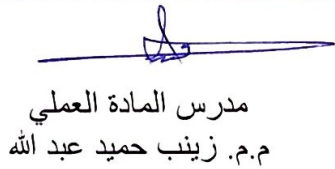 مدرس المادة العملي
م.م. زينب حميد عبد الله